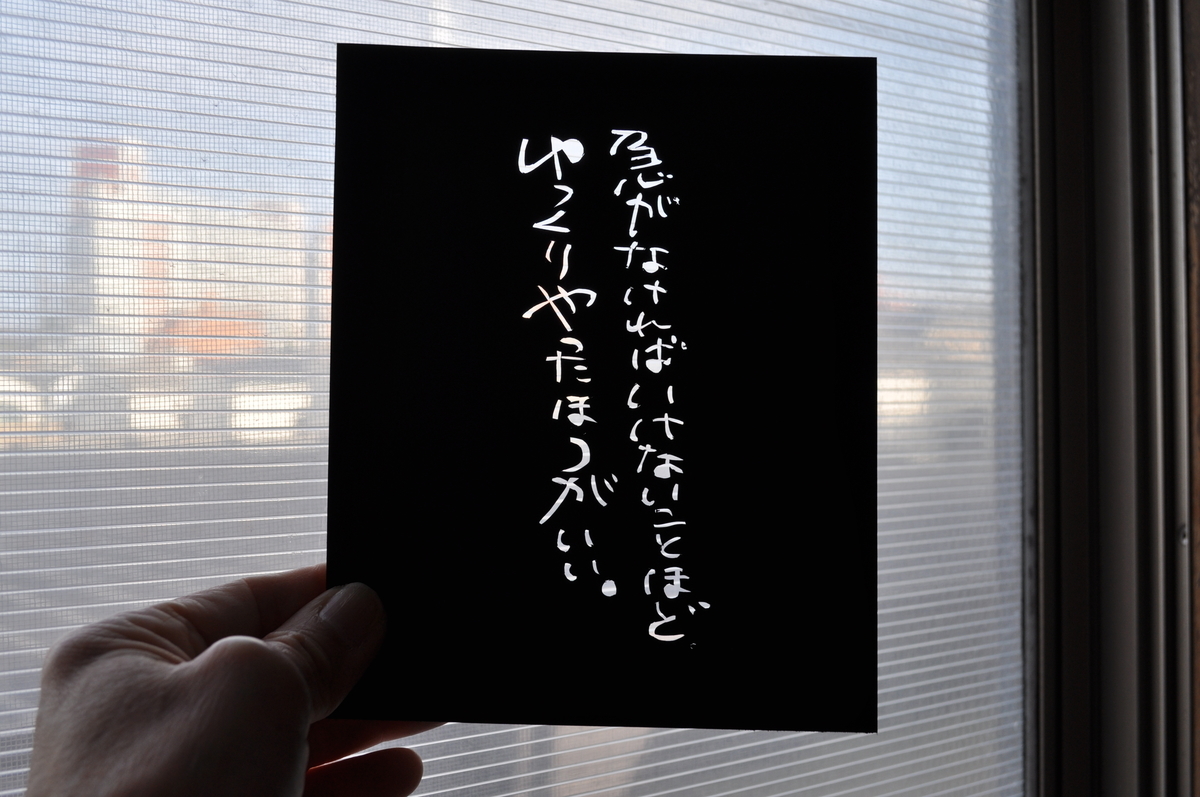 急がなければいけないことほど。
ゆっくりやったほうがいい。